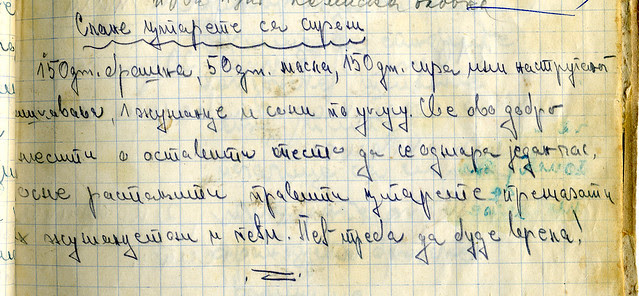 Слане цигарете са сиром
150 gr. брашна, 50 gr. масла, 150 gr. сира или наструганог
качкаваља, 1 жуманце и соли по укусу. Све ово добро
месити и оставити тесто да се одмара један час,
после растањити, правити цигарете премазати
жуманцетом и пећи. Пећ треба да буде врела!